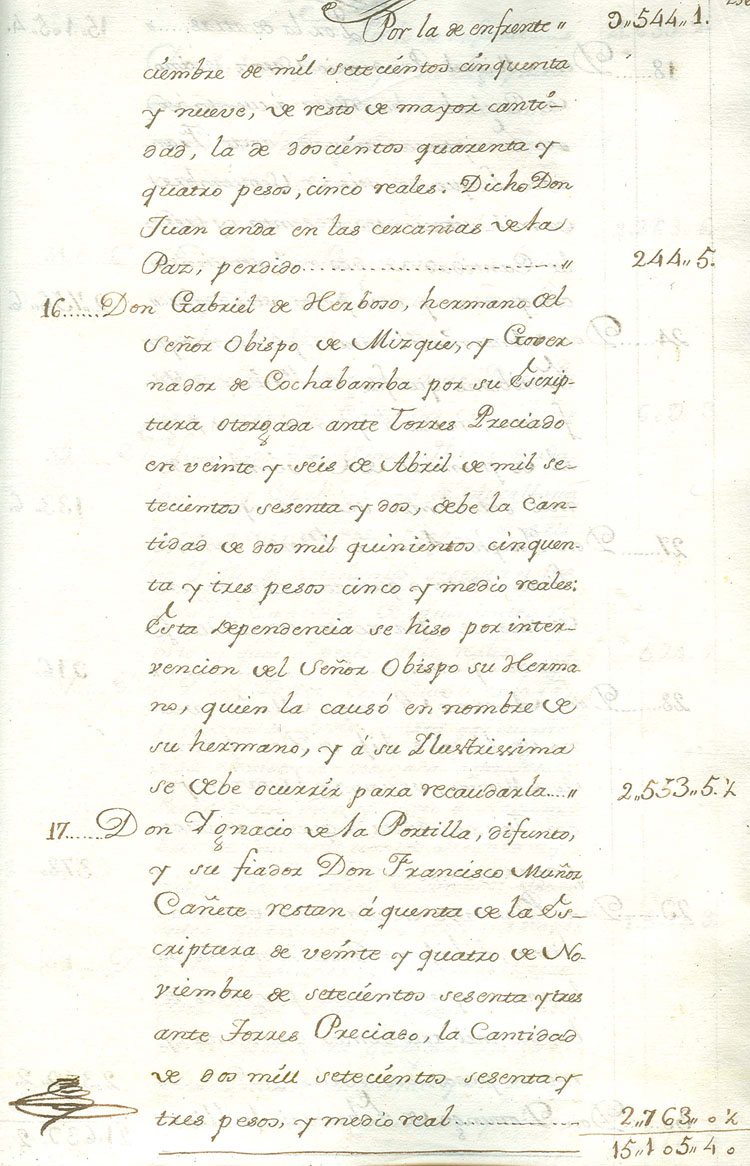 Por la de enfrente „ 9„544„1.
ciembre de mil setecientos cinquenta
y nueve, de resto de mayor canti-
dad, la de doscientos quarenta y
quatro pesos, cinco reales: Dicho Don
Juan anda en las cercanias de la
Paz, perdido..............................„ 244„5.
16......Don Gabriel de Herboso, hermano del
Señor Obispo de Mizque, y Gover
nador de Cochabamba por su Escrip-
tura otorgada ante Torres Preciado
en veinte y seis de Abril de mil se-
tecientos sesenta y dos, debe la can-
tidad de dos mil quinientos cinquen-
ta y tres pesos cinco y medio reales:
Esta dependencia se hiso por inter-
vencion del Señor Obispo su Herma-
no, quien la causó en nombre de
su hermano, y á su Ilustrissima
se debe ocurrir para recaudarla....„ 2„553„5.½
17......Don Ygnacio de la Portilla, difunto,
y su fiador Don Francisco Muñoz
Cañete restan á quenta de la Es-
criptura de veinte y quatro de No-
viembre de setecientos sesenta y tres
ante Torres Preciado, la Cantidad
de dos mill setecientos sesenta y
tres pesos, y medio real.............. 2„763„0½
15„105„40